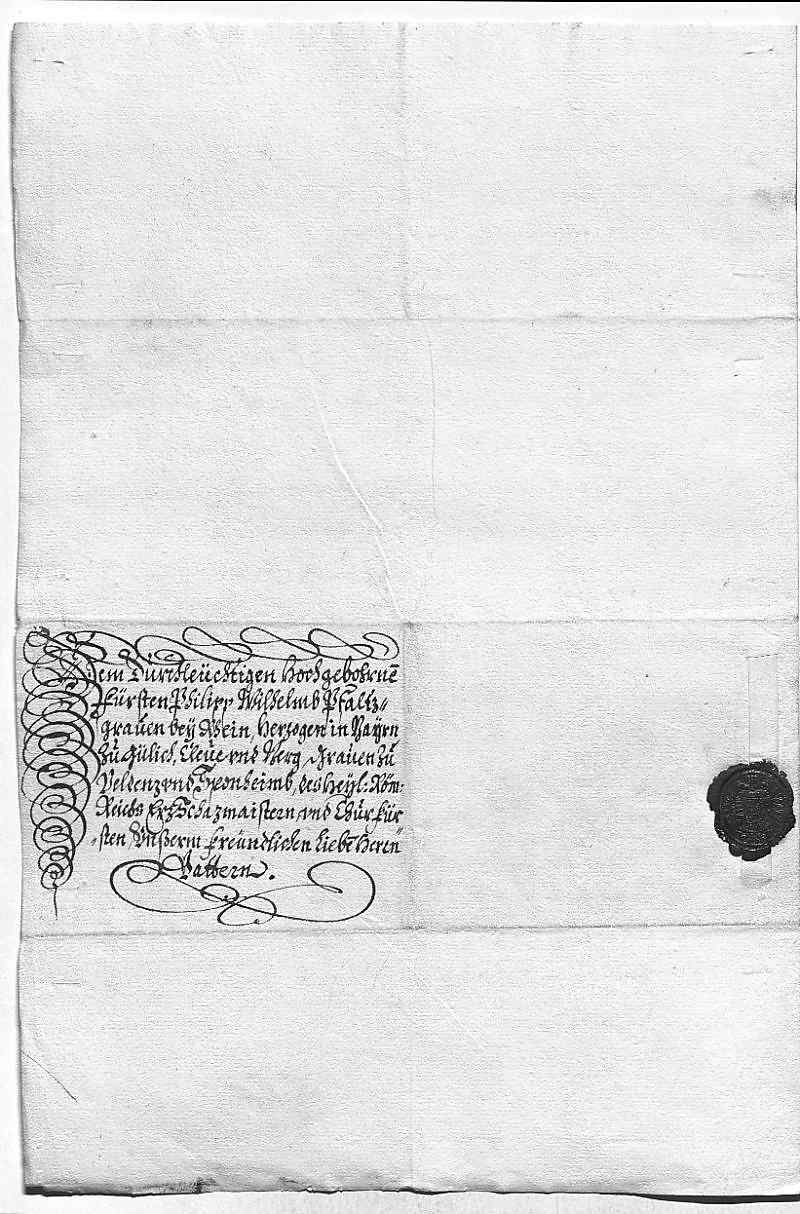 Dem Durchleüchtigen Hochgebohrnē
Fürsten Philipp Wilhelmb Pfaltz-
graüen bey Rhein, Hertzogen in Bayrn
zü Gülich, Cleüe vnd Berg, Graüen zü
Veldenz vnd Sponheimb, des Heyl: Röm:
Reichs ErtzSchazmaistern, vnd Chürfür
-sten, Vnßerm freündlichen liebē Herrn
Vattern.